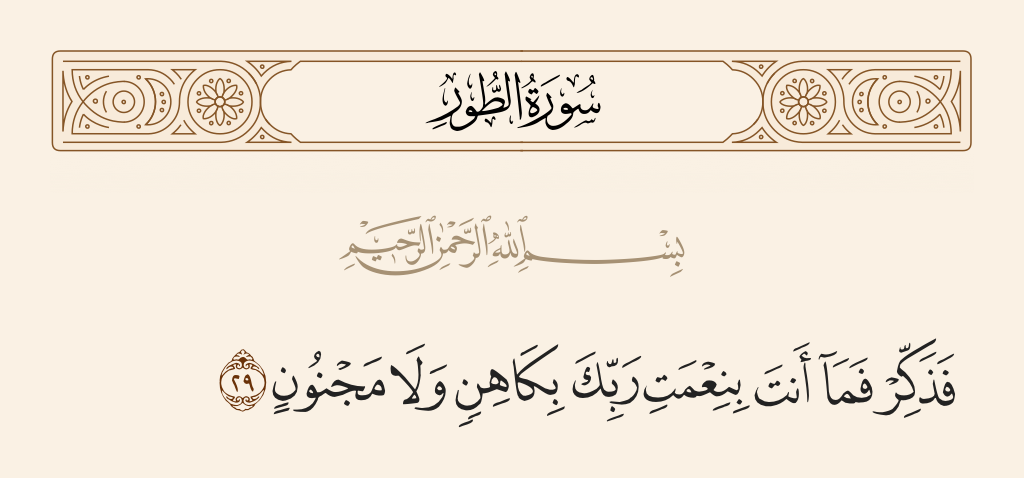 سُورَةُ الطُّورِ
بِسْمِ ٱللَّهِ ٱلرَّحْمَٰنِ ٱلرَّحِيمِ
فَذَكِّرْ فَمَآ أَنتَ بِنِعْمَتِ رَبِّكَ بِكَاهِنٍ وَلَا مَجْنُونٍ ٢٩